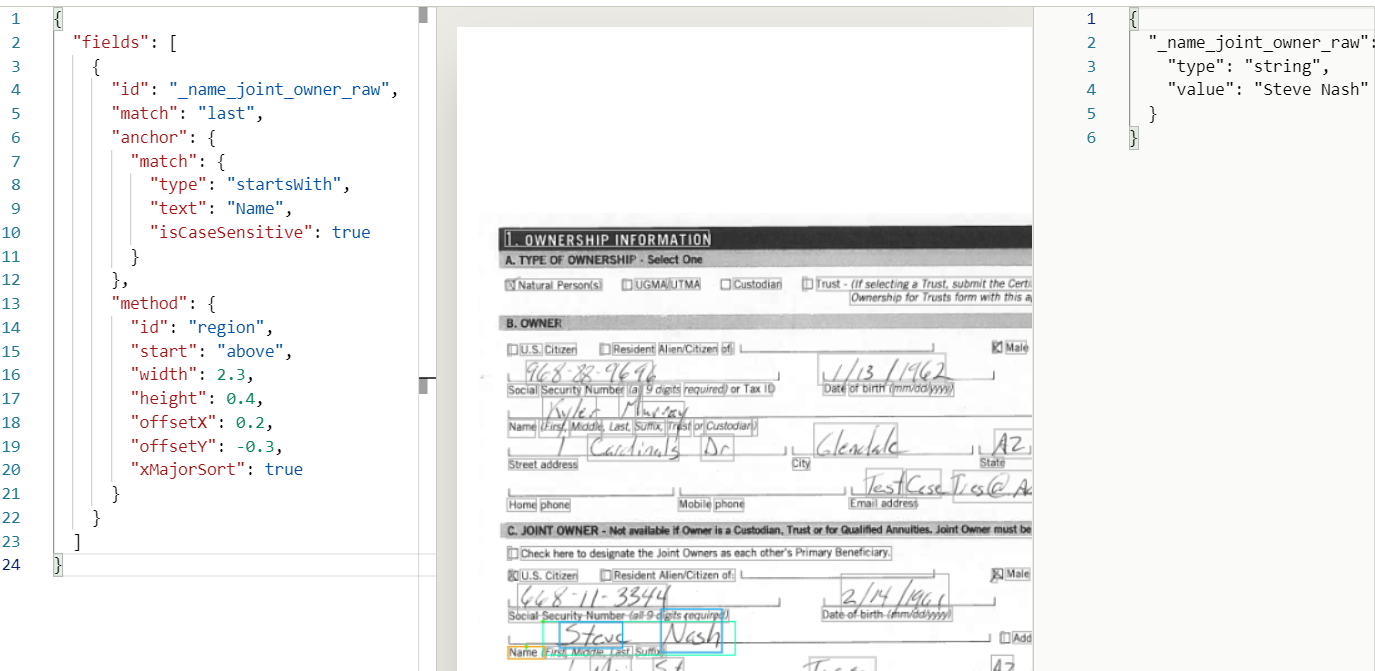 1 {
2 "fields": [
3 {
4 "id": "_name_joint_owner_raw",
5 "match": "last",
6 "anchor": {
7 "match": {
8 "type": "startsWith",
9 "text": "Name",
10 "isCaseSensitive": true
11 }
12 },
13 "method": {
14 "id": "region",
15 "start": "above",
16 "width": 2.3,
17 "height": 0.4,
18 "offsetX": 0.2,
19 "offsetY": -0.3,
20 "xMajorSort": true
21 }
22 }
23 ]
24 }
1. OWNERSHIP INFORMATION
A. TYPE OF OWNERSHIP - Select One
Natural Person(s) UGMA/UTMA Custodian Trust - (If selecting a Trust, submit the Certi
Ownership for Trusts form with this a
B. OWNER
U.S. Citizen Resident Alien/Citizen of: Male
968-88-9696 1/13/1962
Social Security Number (all 9 digits required) or Tax ID Date of birth (mm/dd/yyyy)
Kyler Murray
Name (First, Middle, Last, Suffix, Trust or Custodian)
1 Cardinals Dr Glendale AZ
Street address City State
TestCaseTies@
Home phone Mobile phone Email address
C. JOINT OWNER - Not available if Owner is a Custodian, Trust or for Qualified Annuities. Joint Owner must be
Check here to designate the Joint Owners as each other's Primary Beneficiary.
U.S. Citizen Resident Alien/Citizen of: Male
668-11-3344 2/14/1961
Social Security Number (all 9 digits required) Date of birth (mm/dd/yyyy)
Steve Nash Add
Name (First, Middle, Last, Suffix)
St AZ
1 {
2 "_name_joint_owner_raw":
3 "type": "string",
4 "value": "Steve Nash"
5 }
6 }